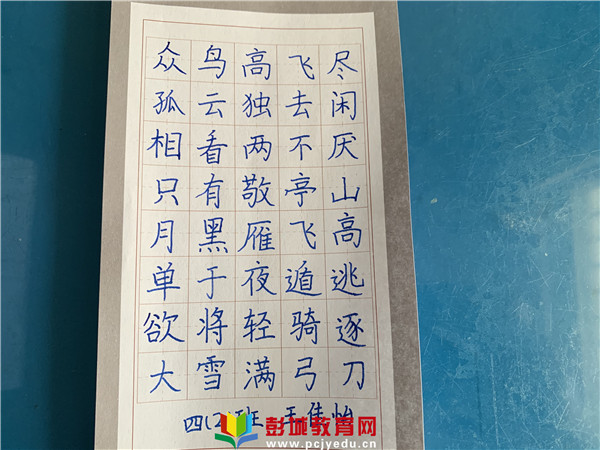 众鸟高飞尽
孤云独去闲
相看两不厌
只有敬亭山
月黑雁飞高
单于夜遁逃
欲将轻骑逐
大雪满弓刀
四(2)班 王佳怡
彭城教育网
www.pcjyedu.cn